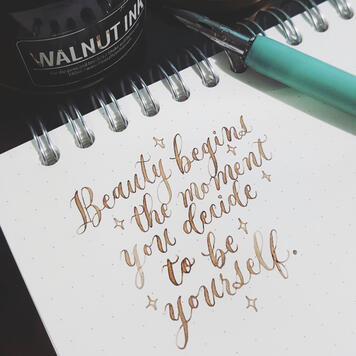 WALNUT INK
Beauty begins
the moment
you decide
to be
yourself.